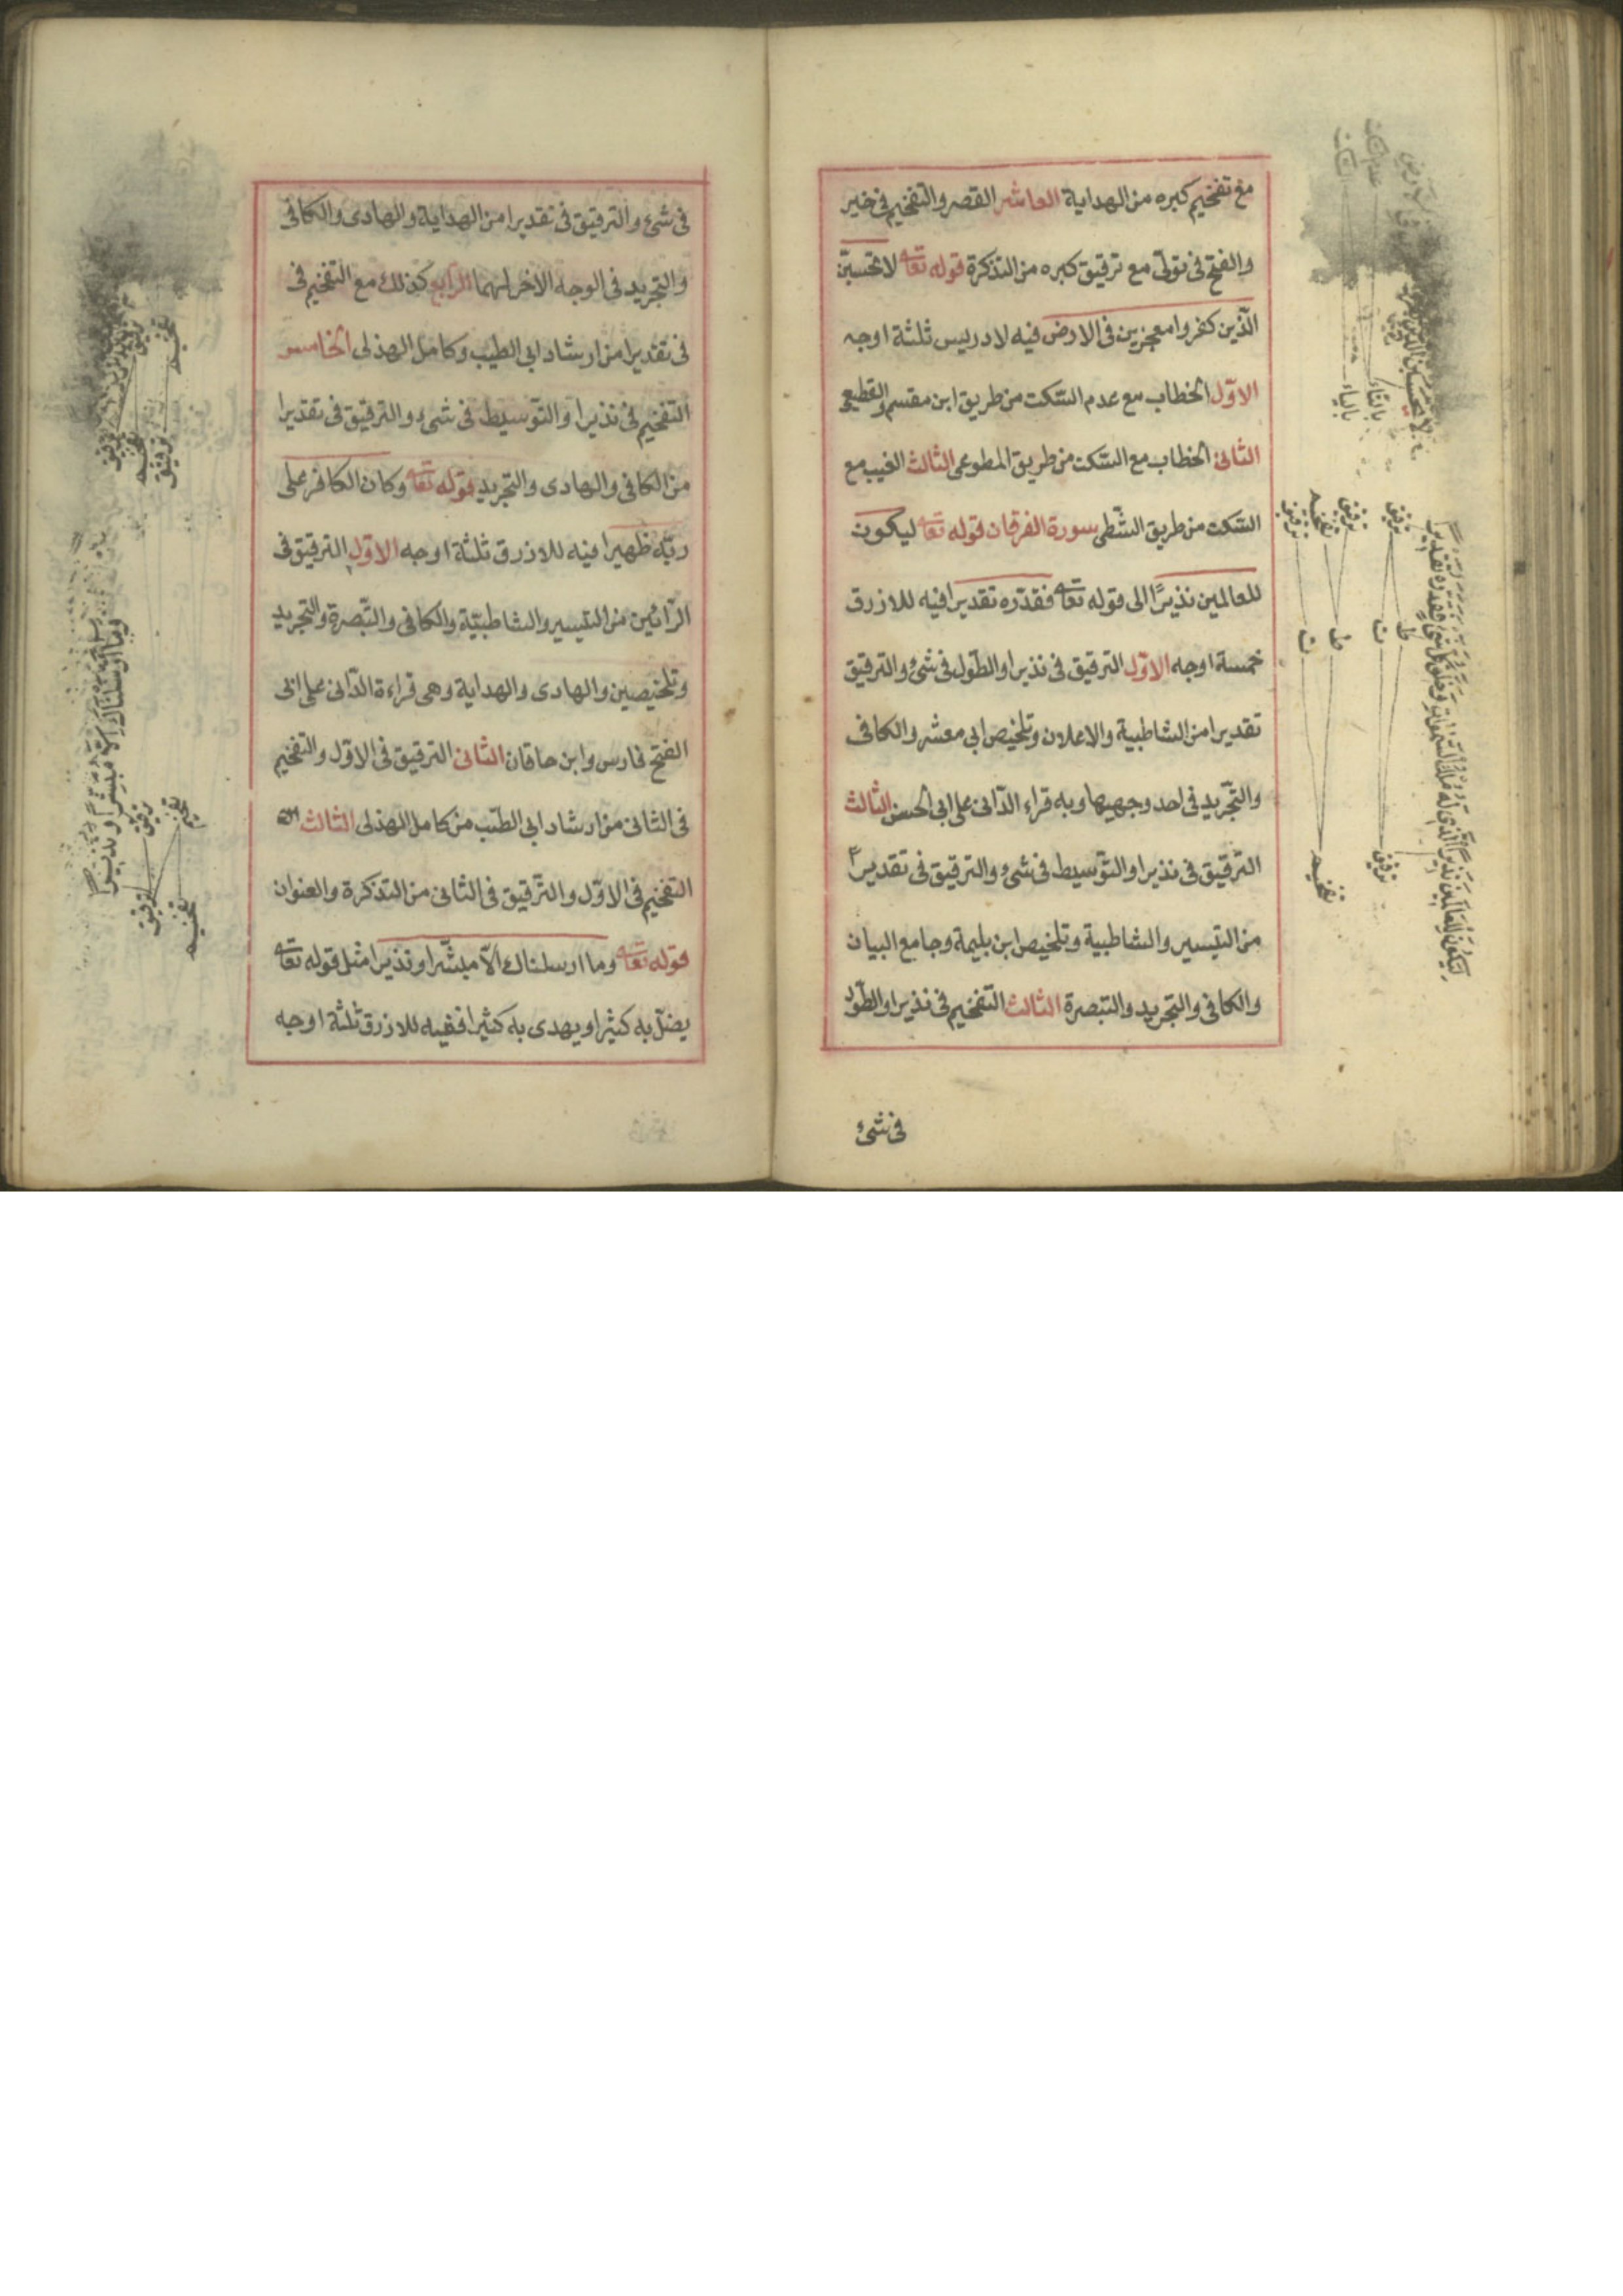 مع تفخيم كبره من الهداية العاشر القصر والتفخيم في خير
والفتح في تولى مع ترقيق كبره من التذكرة قوله تعا لا تحسبن
الذين كفروا معجزين في الارض فيه لادريس ثلثة اوجه
الاول الخطاب مع عدم السكت من طريق ابن مقسم والقطيعى
الثانى الخطاب مع السكت من طريق المطوعى الثالث الغيب مع
السكت من طريق الشطى سورة الفرقان قوله تعا ليكون
للعالمين نذيرًا الى قوله تعا فقدّره تقديرا فيه للازرق
خمسة اوجه الاوّل الترقيق في نذيرا والطول في شئ والترقيق
تقديرا من الشاطبية والاعلان وتلخيص ابى معشر والكافى
والتجريد في احد وجهيها وبه قراء الدّانى على ابى الحسن الثالث
الترقيق في نذيرا والتوسيط في شئ والترقيق في تقديرا
من التيسير والشاطبية وتلخيص ابن بليمة وجامع البيان
والكافى والتجريد والتبصرة الثالث التفخيم في نذيرا والطول
في شئ
ليكون للعالمين نذيرا الذى له ملك السموات وخلق كل شئ فقدره تقديرا
بالتاء
بالياء
ترقيق
ترقيق
تفخيم
ترقيق
ط
ت
ط
ت
ترقيق
تفخيم
في شئ والترقيق في تقديرا من الهداية والهادى والكافى
والتجريد في الوجه الاخر لهما الرابع كذلك مع التفخيم في
في تقديرا من ارشاد ابى الطيب وكامل الهذلى الخامس
التفخيم في نذيرا والتوسيط في شئ والترقيق في تقديرا
من الكافى والهادى والتجريد قوله تعا وكان الكافر على
ربّه ظهيرا فيه للازرق ثلثة اوجه الاوّل الترقيق في
الرائين من التيسير والشاطبيّة والكافى والتبصرة والتجريد
وتلخيصين والهادى والهداية وهى قراءة الدّانى على ابى
الفتح فارس وابن حاقان الثانى الترقيق في الاوّل والتفخيم
في الثانى من ارشاد ابى الطيّب من كامل الهذلى الثالث
التفخيم في الاوّل والترقيق في الثانى من التذكرة والعنوان
قوله تعا وما ارسلناك الاّ مبشّرا ونذيرا مثل قوله تعا
يضلّ به كثيرا ويهدى به كثيرا ففيه للازرق ثلثة اوجه
وما ارسلناك الا مبشرا ونذيرا
تفخيم
ترقيق
ترقيق
تفخيم